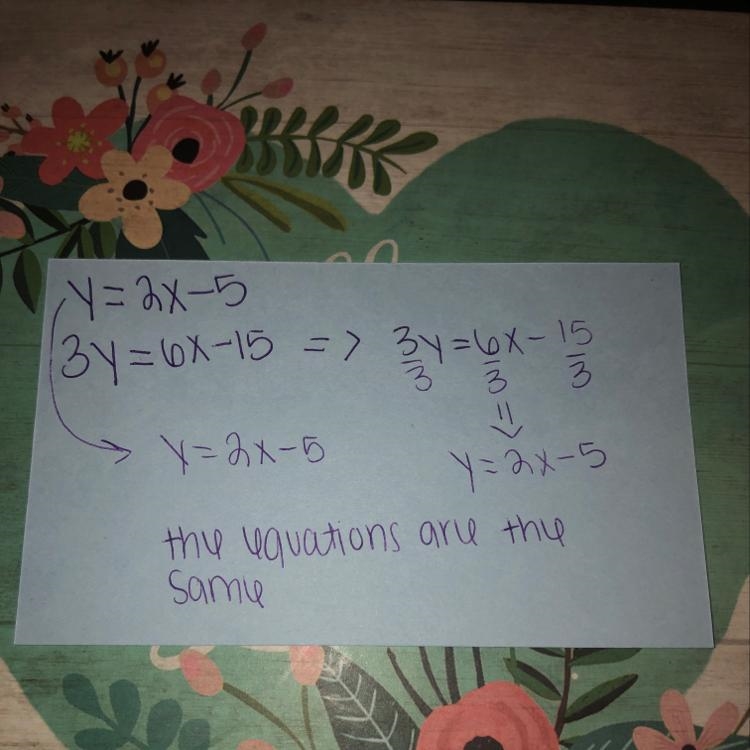 y=2x-5
3y=6x-15 => 3y/3=6x/3-15/3
y=2x-5 y=2x-5
the equations are the
same